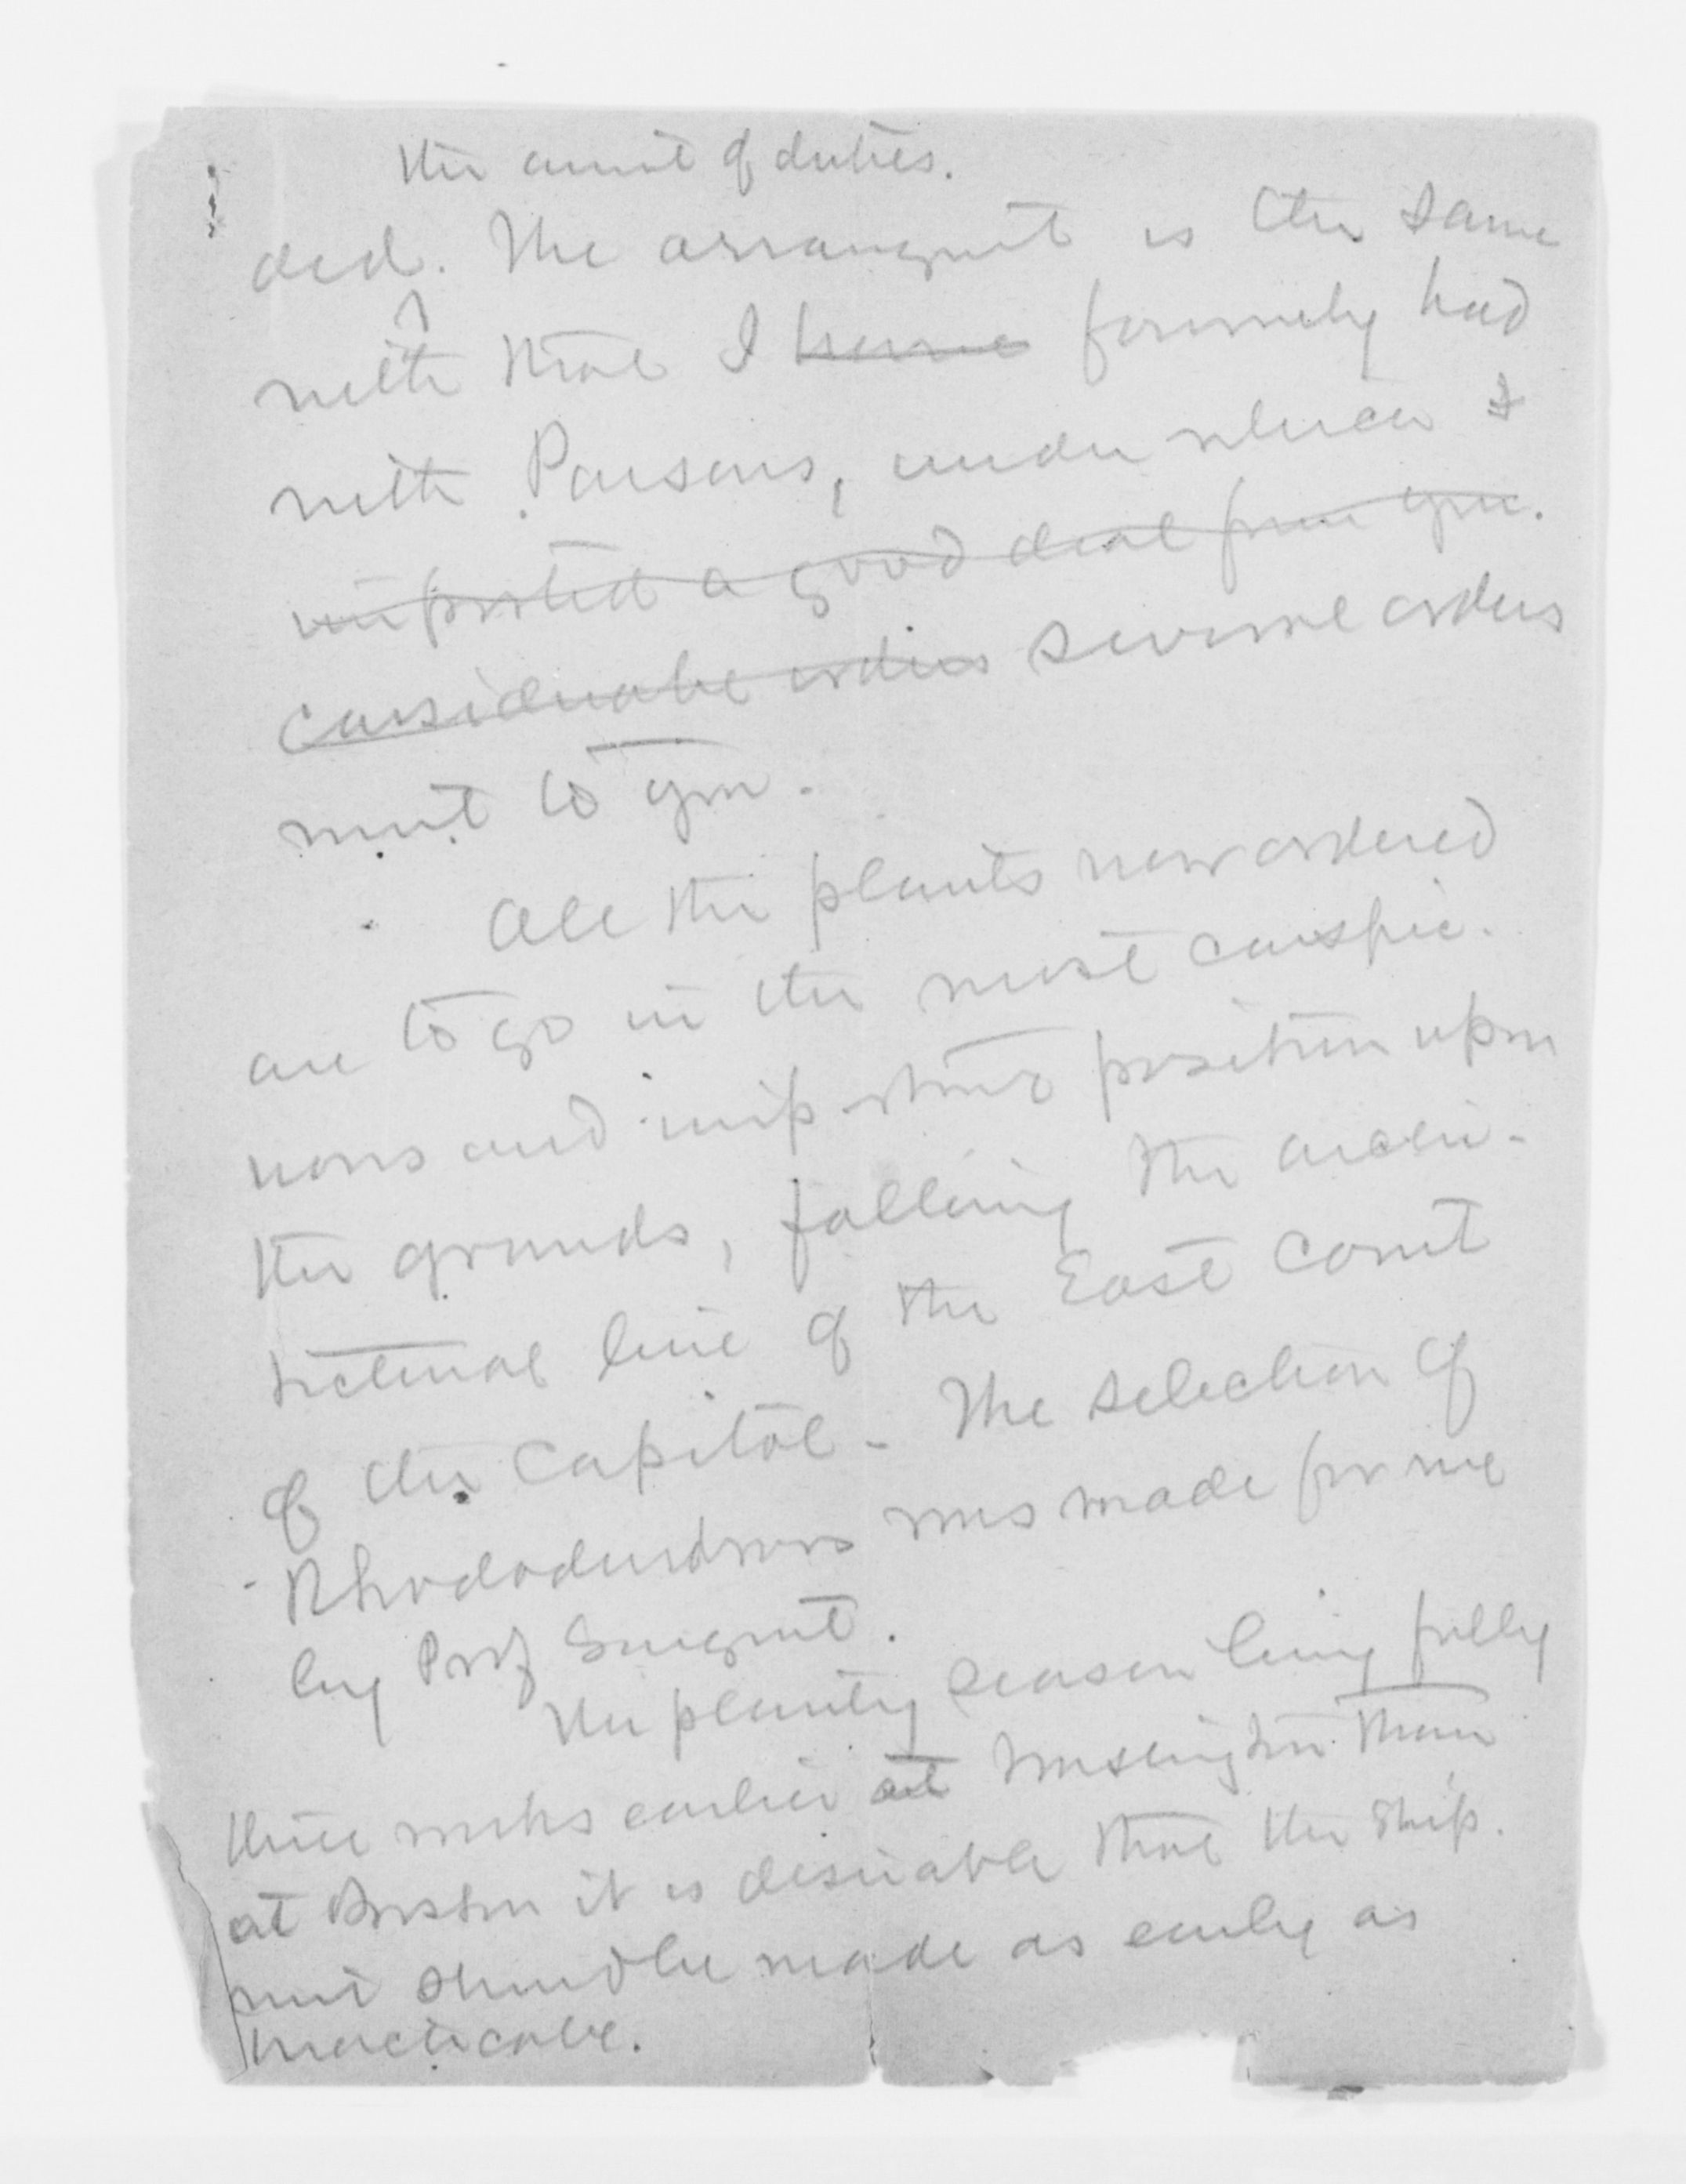 the amnt of duties.
ded. The arrangmt is the same
with that I have formerly had
with Parsons, under which I
imported a good deal from you.
considerable orders several orders
went to you.
All the plants now ordered
are to go in the most conspic-
uous and important position upon
the grounds, falling the archi-
tectural line of the East Court
of the Capitol - The selection of
Rhododendrons was made for me
by Prof Sargent.
The planting season being fully
three weeks earlier at Washington than
at Boston it is desirable that the ship-
ment should be made as early as
practicable.